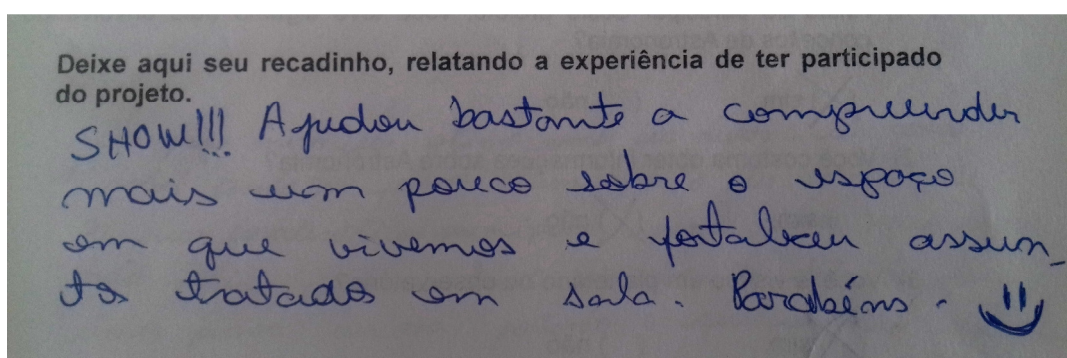 Deixe aqui seu recadinho, relatando a experiência de ter participado
do projeto.
SHOW!!! Ajudou bastante a compreender
mais um pouco sobre o espaço
em que vivemos e fortaleceu assun_
tos tratados em sala. Parabéns.